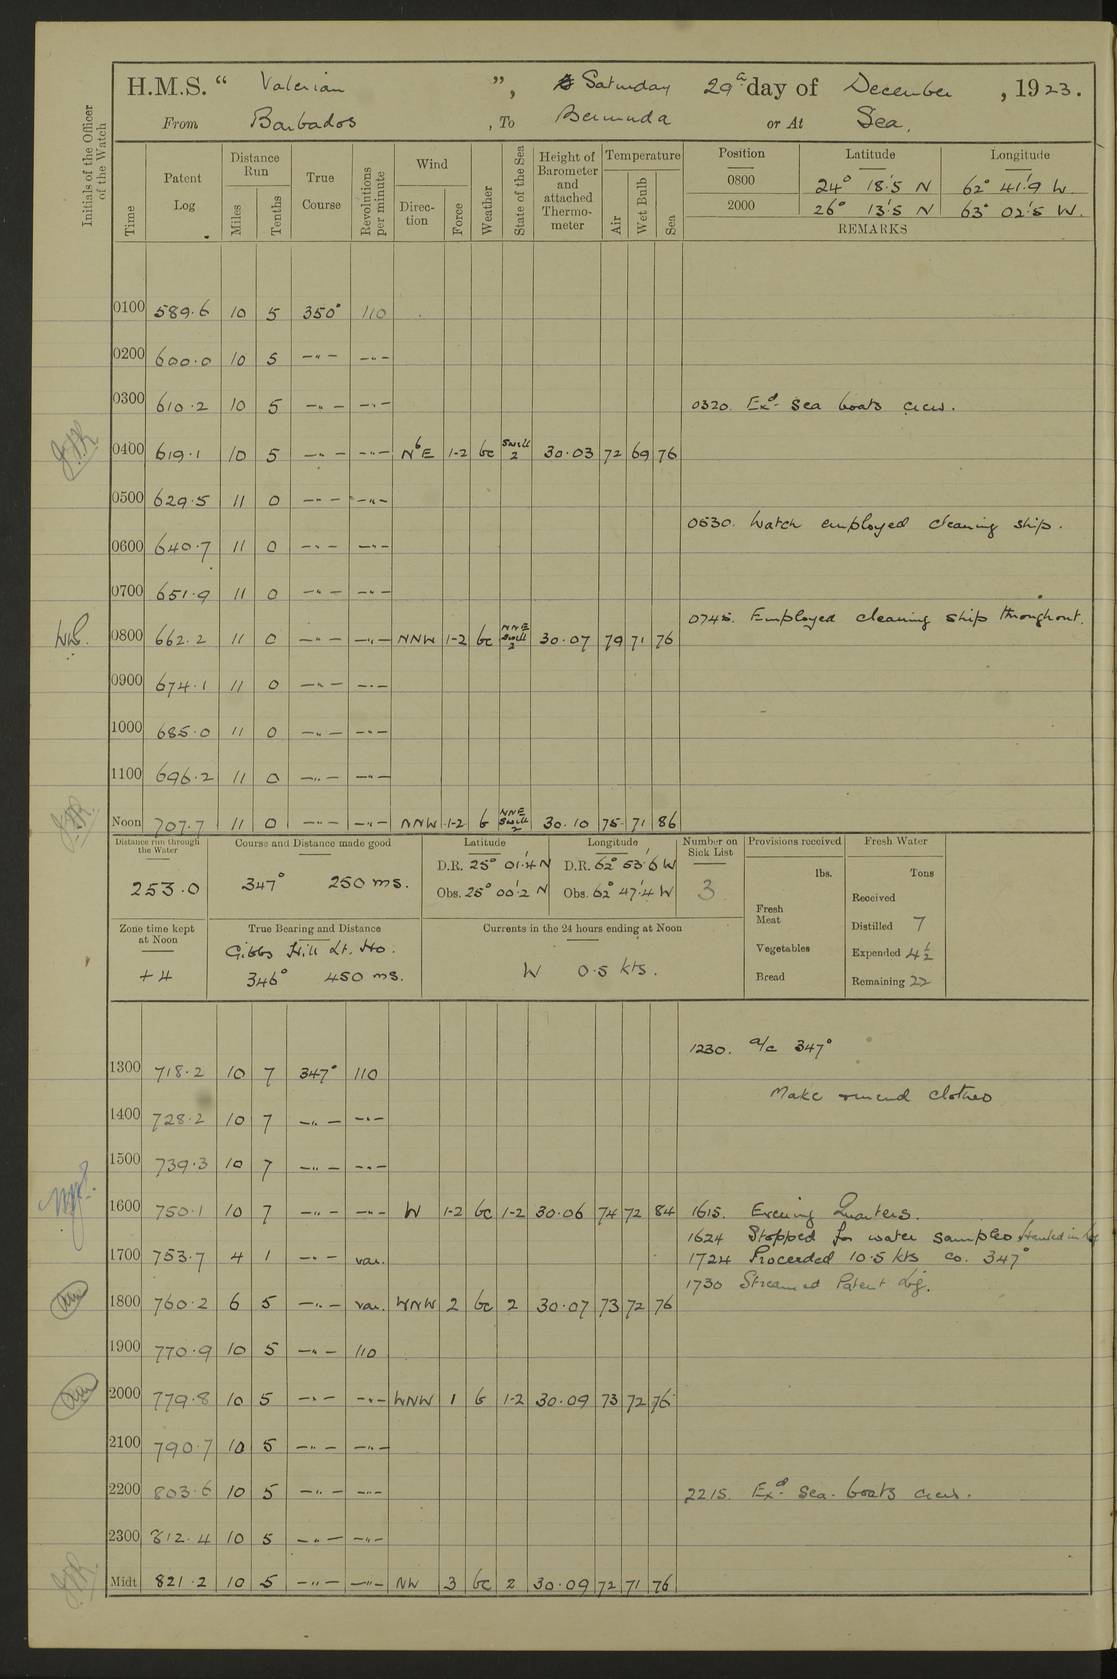 H.M.S. “ Valerian ”, Saturday 29th day of December , 1923.
From Barbados , To Bermuda or At Sea.
Initials of the Officer of the Watch
Time Patent Log Distance Run Miles Tenths True Course Revolutions per minute Wind Direction Force Weather State of the Sea Height of Barometer and attached Thermometer Temperature Air Wet Bulb Sea
Position Latitude Longitude
0800 24° 18'.5 N 62° 41'.9 W
2000 26° 13'.5 N 63° 02'.5 W.
REMARKS
0100 589.6 10 5 350° 110
0200 600.0 10 5 — " — — " —
0300 610.2 10 5 — " — — " — 0320. Exd. Sea boats crew.
0400 619.1 10 5 — " — — " — NbE 1-2 bc Swell 2 30.03 72 69 76
0500 629.5 11 0 — " — — " —
0530. Watch employed cleaning ship.
0600 640.7 11 0 — " — — " —
0700 651.9 11 0 — " — — " —
0745. Employed cleaning ship throughout.
0800 662.2 11 0 — " — — " — NNW 1-2 bc NNE Swell 2 30.07 79 71 76
0900 674.1 11 0 — " — — " —
1000 685.0 11 0 — " — — " —
1100 696.2 11 0 — " — — " —
Noon 707.7 11 0 — " — — " — NNW 1-2 b NNE Swell 2 30.10 75 71 86
Distance run through the Water 253.0
Course and Distance made good 347° 250 ms.
Latitude D.R. 25° 01'.4 N Obs. 25° 00'.2 N
Longitude D.R. 62° 53'.6 W Obs. 62° 47'.4 W
Number on Sick List 3
Provisions received lbs.
Fresh Meat
Vegetables
Bread
Fresh Water Tons
Received
Distilled 7
Expended 4½
Remaining 22
Zone time kept at Noon +4
True Bearing and Distance Gibbs Hill Lt. Ho. 346° 450 ms.
Currents in the 24 hours ending at Noon W 0.5 kts.
1230. a/c 347°
1300 718.2 10 7 347° 110
Make & mend clothes
1400 728.2 10 7 — " — — " —
1500 739.3 10 7 — " — — " —
1600 750.1 10 7 — " — — " — W 1-2 bc 1-2 30.06 74 72 84 1615. Evening Quarters.
1624 Stopped for water samples
1700 753.7 4 1 — " — var. 1724 Proceeded 10.5 kts co. 347°
1730 Streamed Patent Log.
1800 760.2 6 5 — " — var. WNW 2 bc 2 30.07 73 72 76
1900 770.9 10 5 — " — 110
2000 779.8 10 5 — " — — " — WNW 1 b 1-2 30.09 73 72 76
2100 790.7 10 5 — " — — " —
2200 803.6 10 5 — " — — " — 2215. Exd. Sea. boats crew.
2300 812.4 10 5 — " — — " —
Midt 821.2 10 5 — " — — " — NW 3 bc 2 30.09 72 71 76